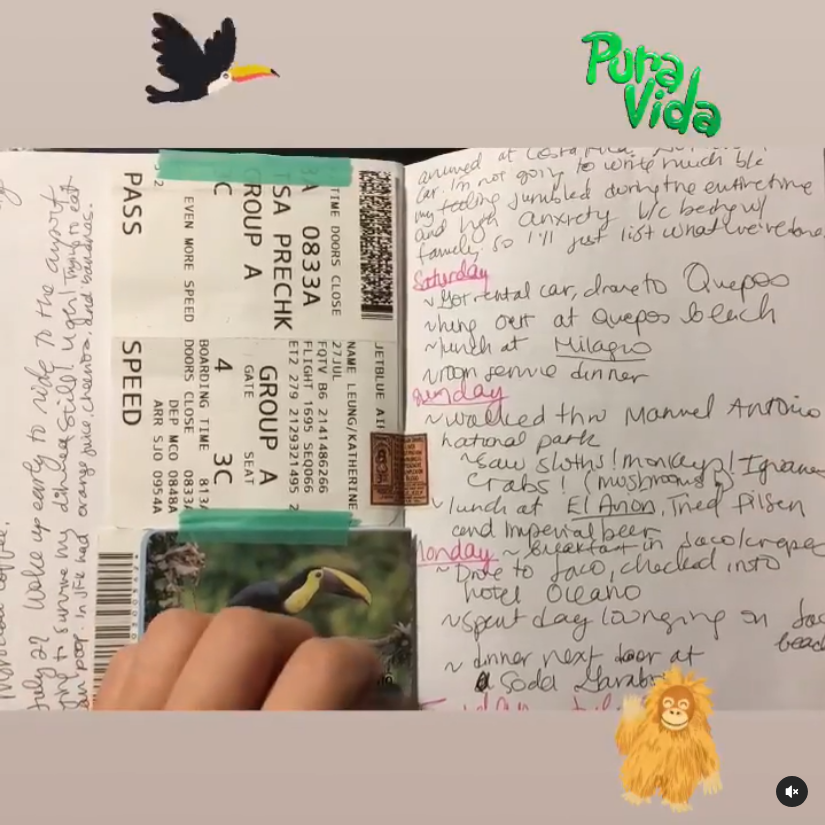 Pura
Vida
arrived at Costa Rica
car. I'm not going to write much b/c
my feeling jumbled during the entire time
and high anxiety b/c being w/
family. So I'll just list what we've done.
Saturday
~Got rental car, drove to Quepos
~hung out at Quepos beach
~lunch at Milagro
~room service dinner
Sunday
~walked thru Manuel Antonio
national park
~saw sloths! monkeys! Iguanas
Crabs! (mushrooms)
~lunch at El Avion, Tried Pilsen
and Imperial beer
Monday ~ breakfast in Jaco/crepes
~Drive to Jaco, checked into
hotel Oceano
~spent day lounging on Jaco
beach
~ dinner next door at
Soda Garabito
TIME DOORS CLOSE
0833A
TSA PRECHK
GROUP A
3C
EVEN MORE SPEED
PASS
NAME LEUNG/KATHERINE
27JUL
FQTV B6 2141486266
FLIGHT 1695 SEQ066
ET2 279 2129321495 2
GROUP A
GATE SEAT
4 3C
BOARDING TIME 813A
DOORS CLOSE 0833A
DEP MCO 0848A
ARR SJO 0954A
SPEED
coffee.
July 27 Woke up early to ride to the airport
to survive my dinner still! Ugh! Trying to eat
poop in. Jfk had orange juice, cheerios, and bananas.